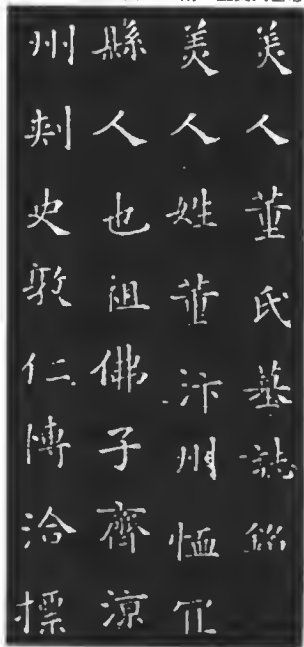 美人董氏墓誌銘
美人姓董汴州恤宜
縣人也祖佛子齊涼
州刺史敦仁博洽標